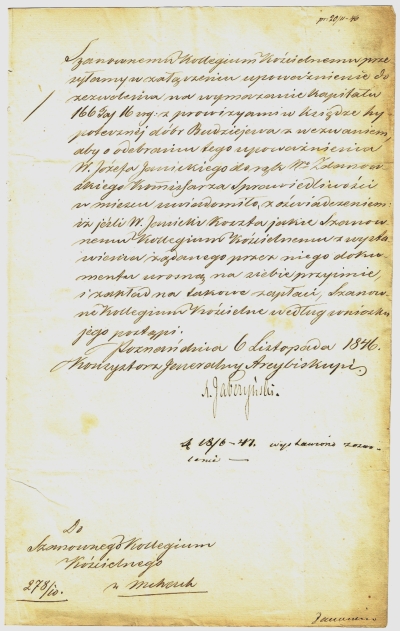 Szanownemu Kollegium Kościelnemu prze
syłamy w załączeniu upoważnienie do
zezwolenia na wymazanie Kapitału
166 Tal 16 sgr. z prowizyami w Księdze hy
potecznéj dóbr Budziejewa z wezwaniem
aby o odebraniu tego upoważnienia
W. Józefa Janickiego do rąk Wo Zdanow
skiego Komissarza Sprawiedliwości
w miejscu uwiadomiło, z oświadczeniem
iż jeśli W. Janicki Koszta jakie Szanow
nemu Kollegium Kościelnemu z wysta
wienia żądanego przez niego doku
mentu urosną na siebie przyjmie
i zakład na takowe zapłaci, Szanow
ne Kollegium Kościelne według wniosku
jego postąpi.
Poznań dnia 6 Listopada 1846.
Konsystorz Jeneralny Arcybiskupi
A. Gabczyński.
d 13/3 - 47. wystawiono zezwo
lenie —
Do
Szanownego Kollegium
Kościelnego
278/10. w